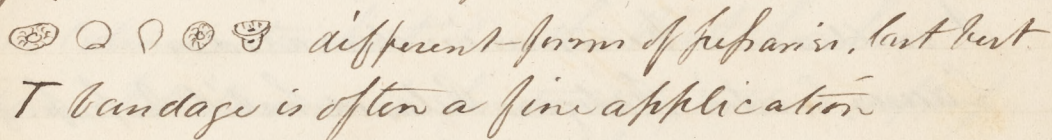 different forms of pessaries, last best
T bandage is often a fine application